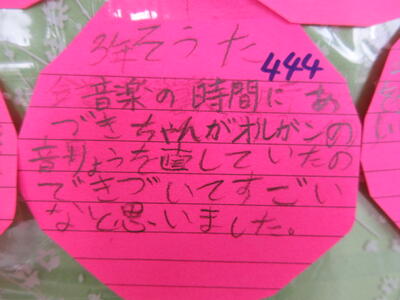 3年そうた
444
音楽の時間にあ
づきちゃんがオルガンの
音りょうを直していたの
できづいてすごい
なと思いました。